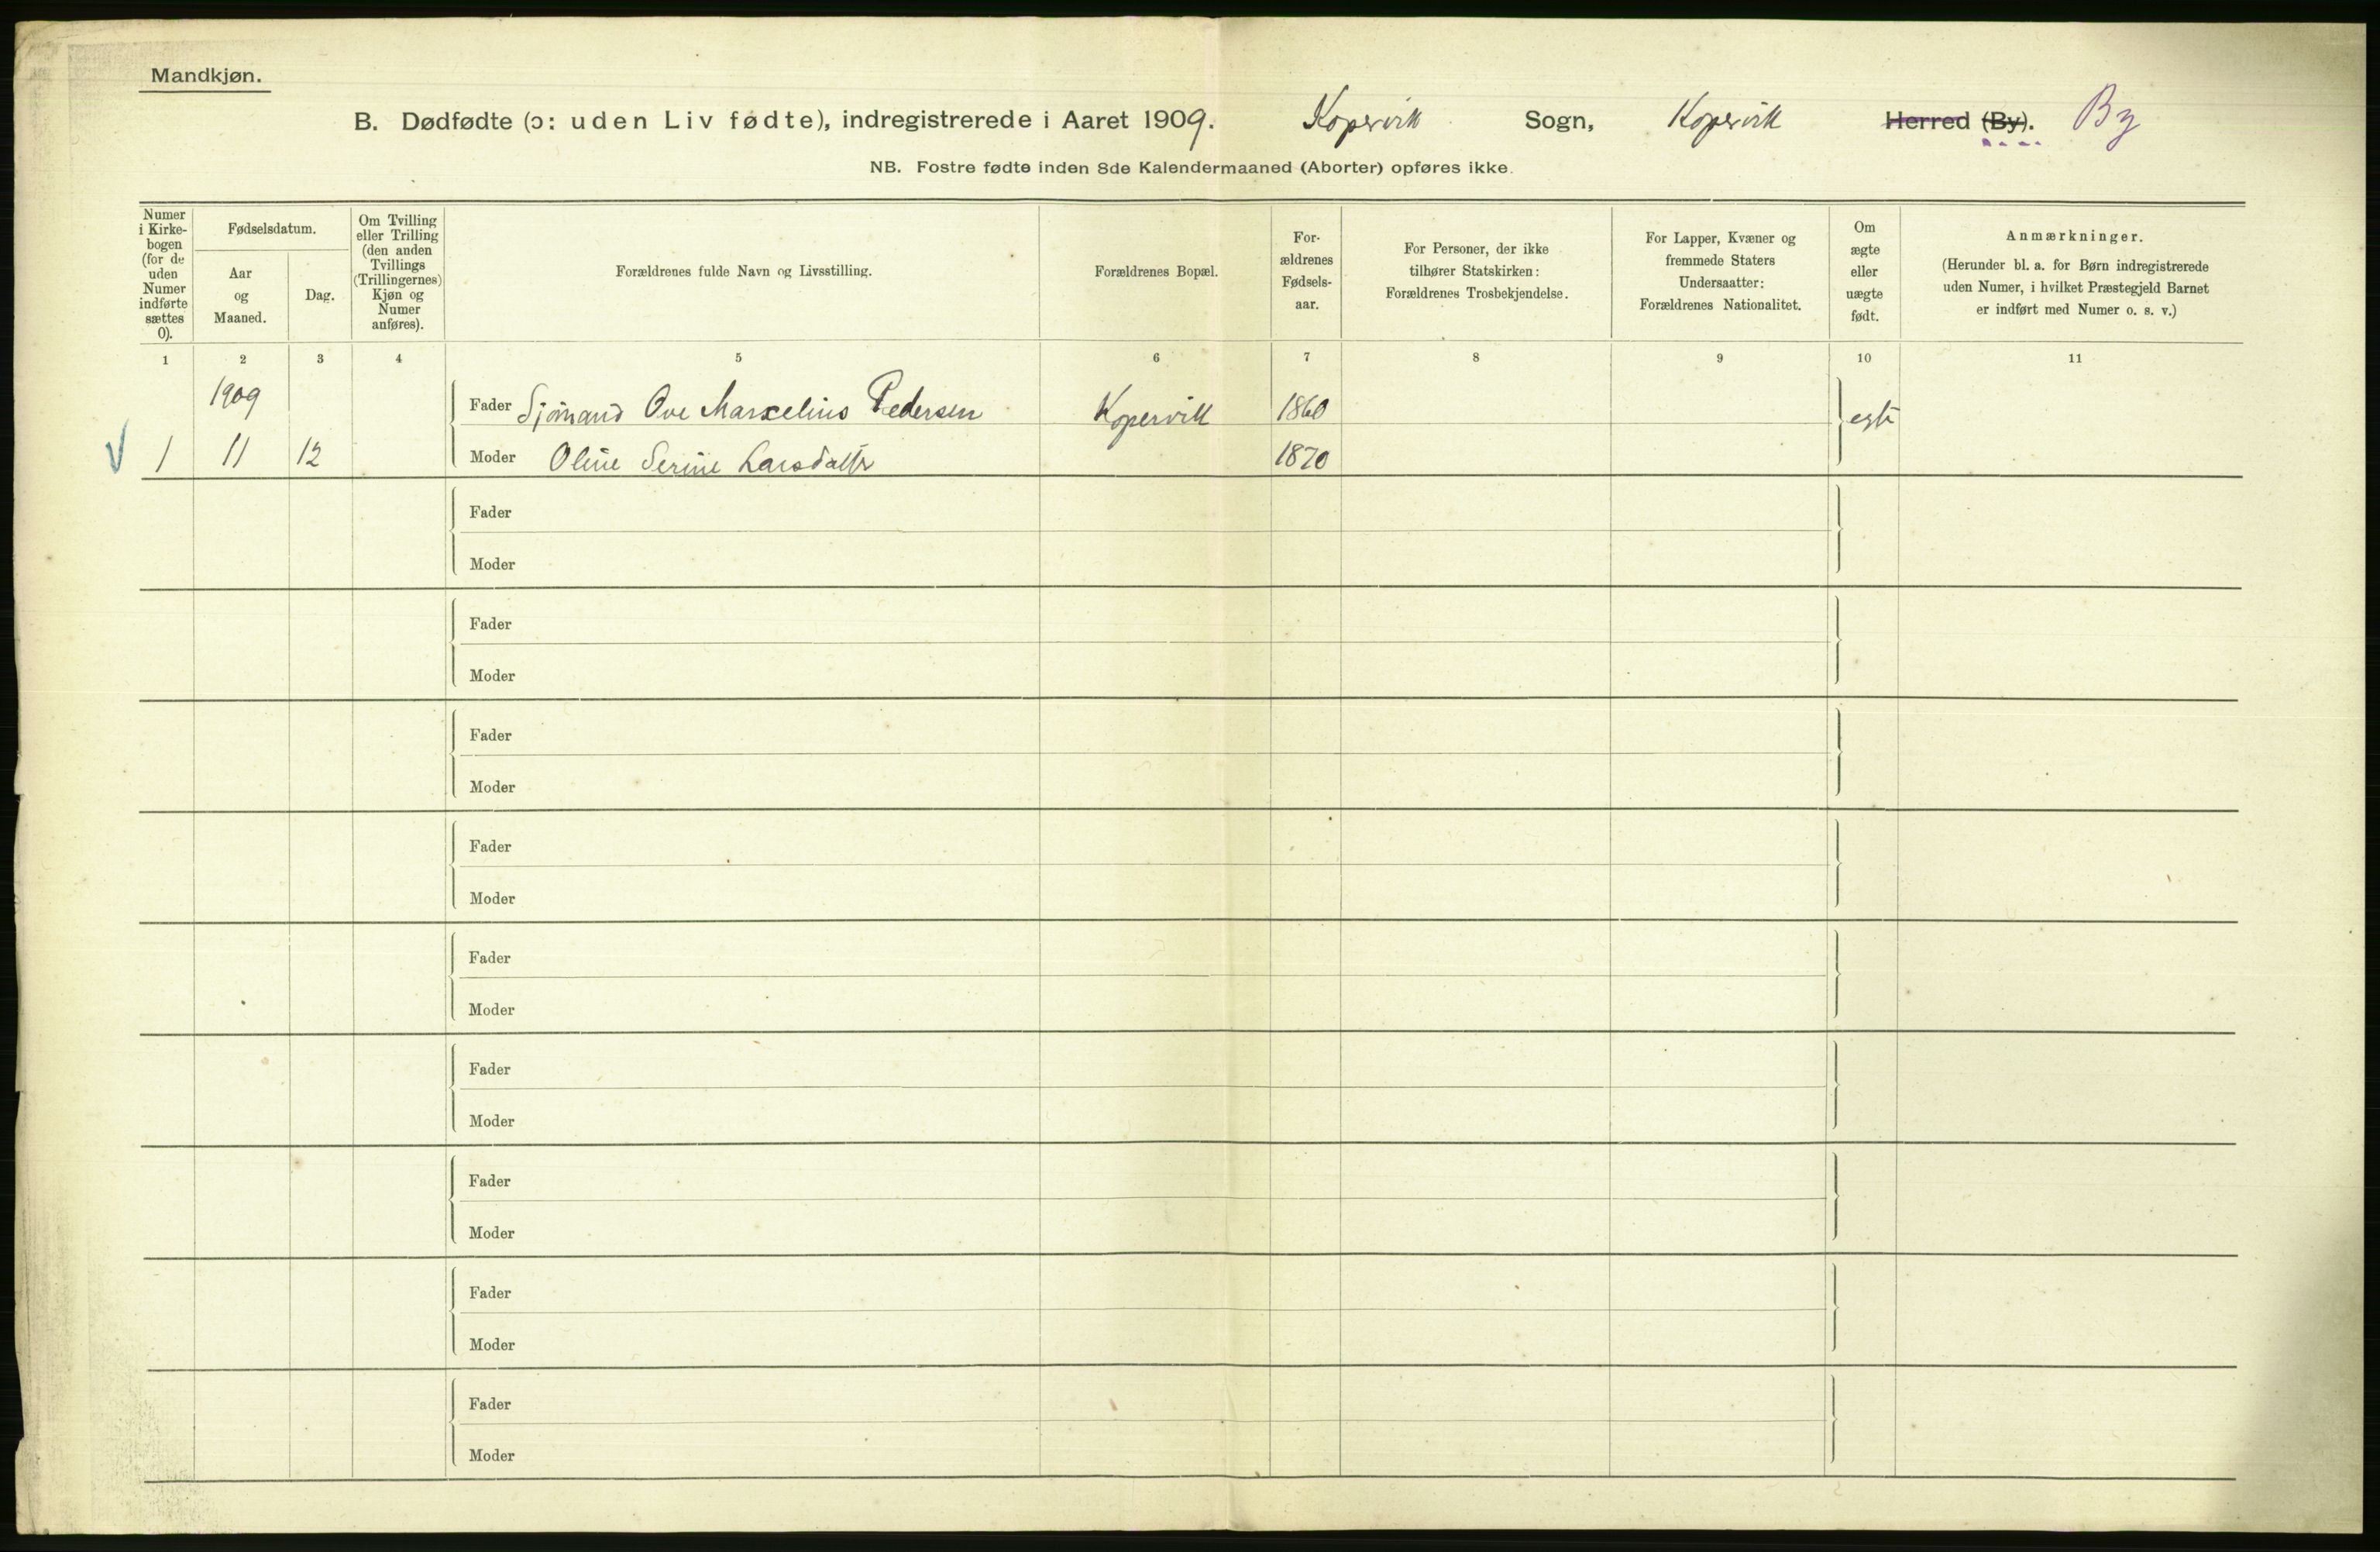 Mandkjøn.
B. Dødfødte (ɔ: uden Liv fødte), indregistrerede i Aaret 1909. Kopervik Sogn, Kopervik Herred (By). By
NB. Fostre fødte inden 8de Kalendermaaned (Aborter) opføres ikke.
Numer
i Kirke-
bogen
(for de
uden
Numer
indførte
sættes
0).
Fødselsdatum.
Aar
og
Maaned.
Dag.
Om Tvilling
eller Trilling
(den anden
Tvillings
(Trillingernes)
Kjøn og
Numer
anføres).
Forældrenes fulde Navn og Livsstilling.
Forældrenes Bopæl.
For-
ældrenes
Fødsels-
aar.
For Personer, der ikke
tilhører Statskirken:
Forældrenes Trosbekjendelse.
For Lapper, Kvæner og
fremmede Staters
Undersaatter:
Forældrenes Nationalitet.
Om
ægte
eller
uægte
født.
Anmærkninger.
(Herunder bl. a. for Børn indregistrerede
uden Numer, i hvilket Præstegjeld Barnet
er indført med Numer o. s. v.)
1 2 3 4 5 6 7 8 9 10 11
1909 Fader Sjömand Ove Marselius Pedersen Kopervik 1860 egte
1 11 12 Moder Oline Serine Larsdatter 1870
Fader
Moder
Fader
Moder
Fader
Moder
Fader
Moder
Fader
Moder
Fader
Moder
Fader
Moder
Fader
Moder
Fader
Moder